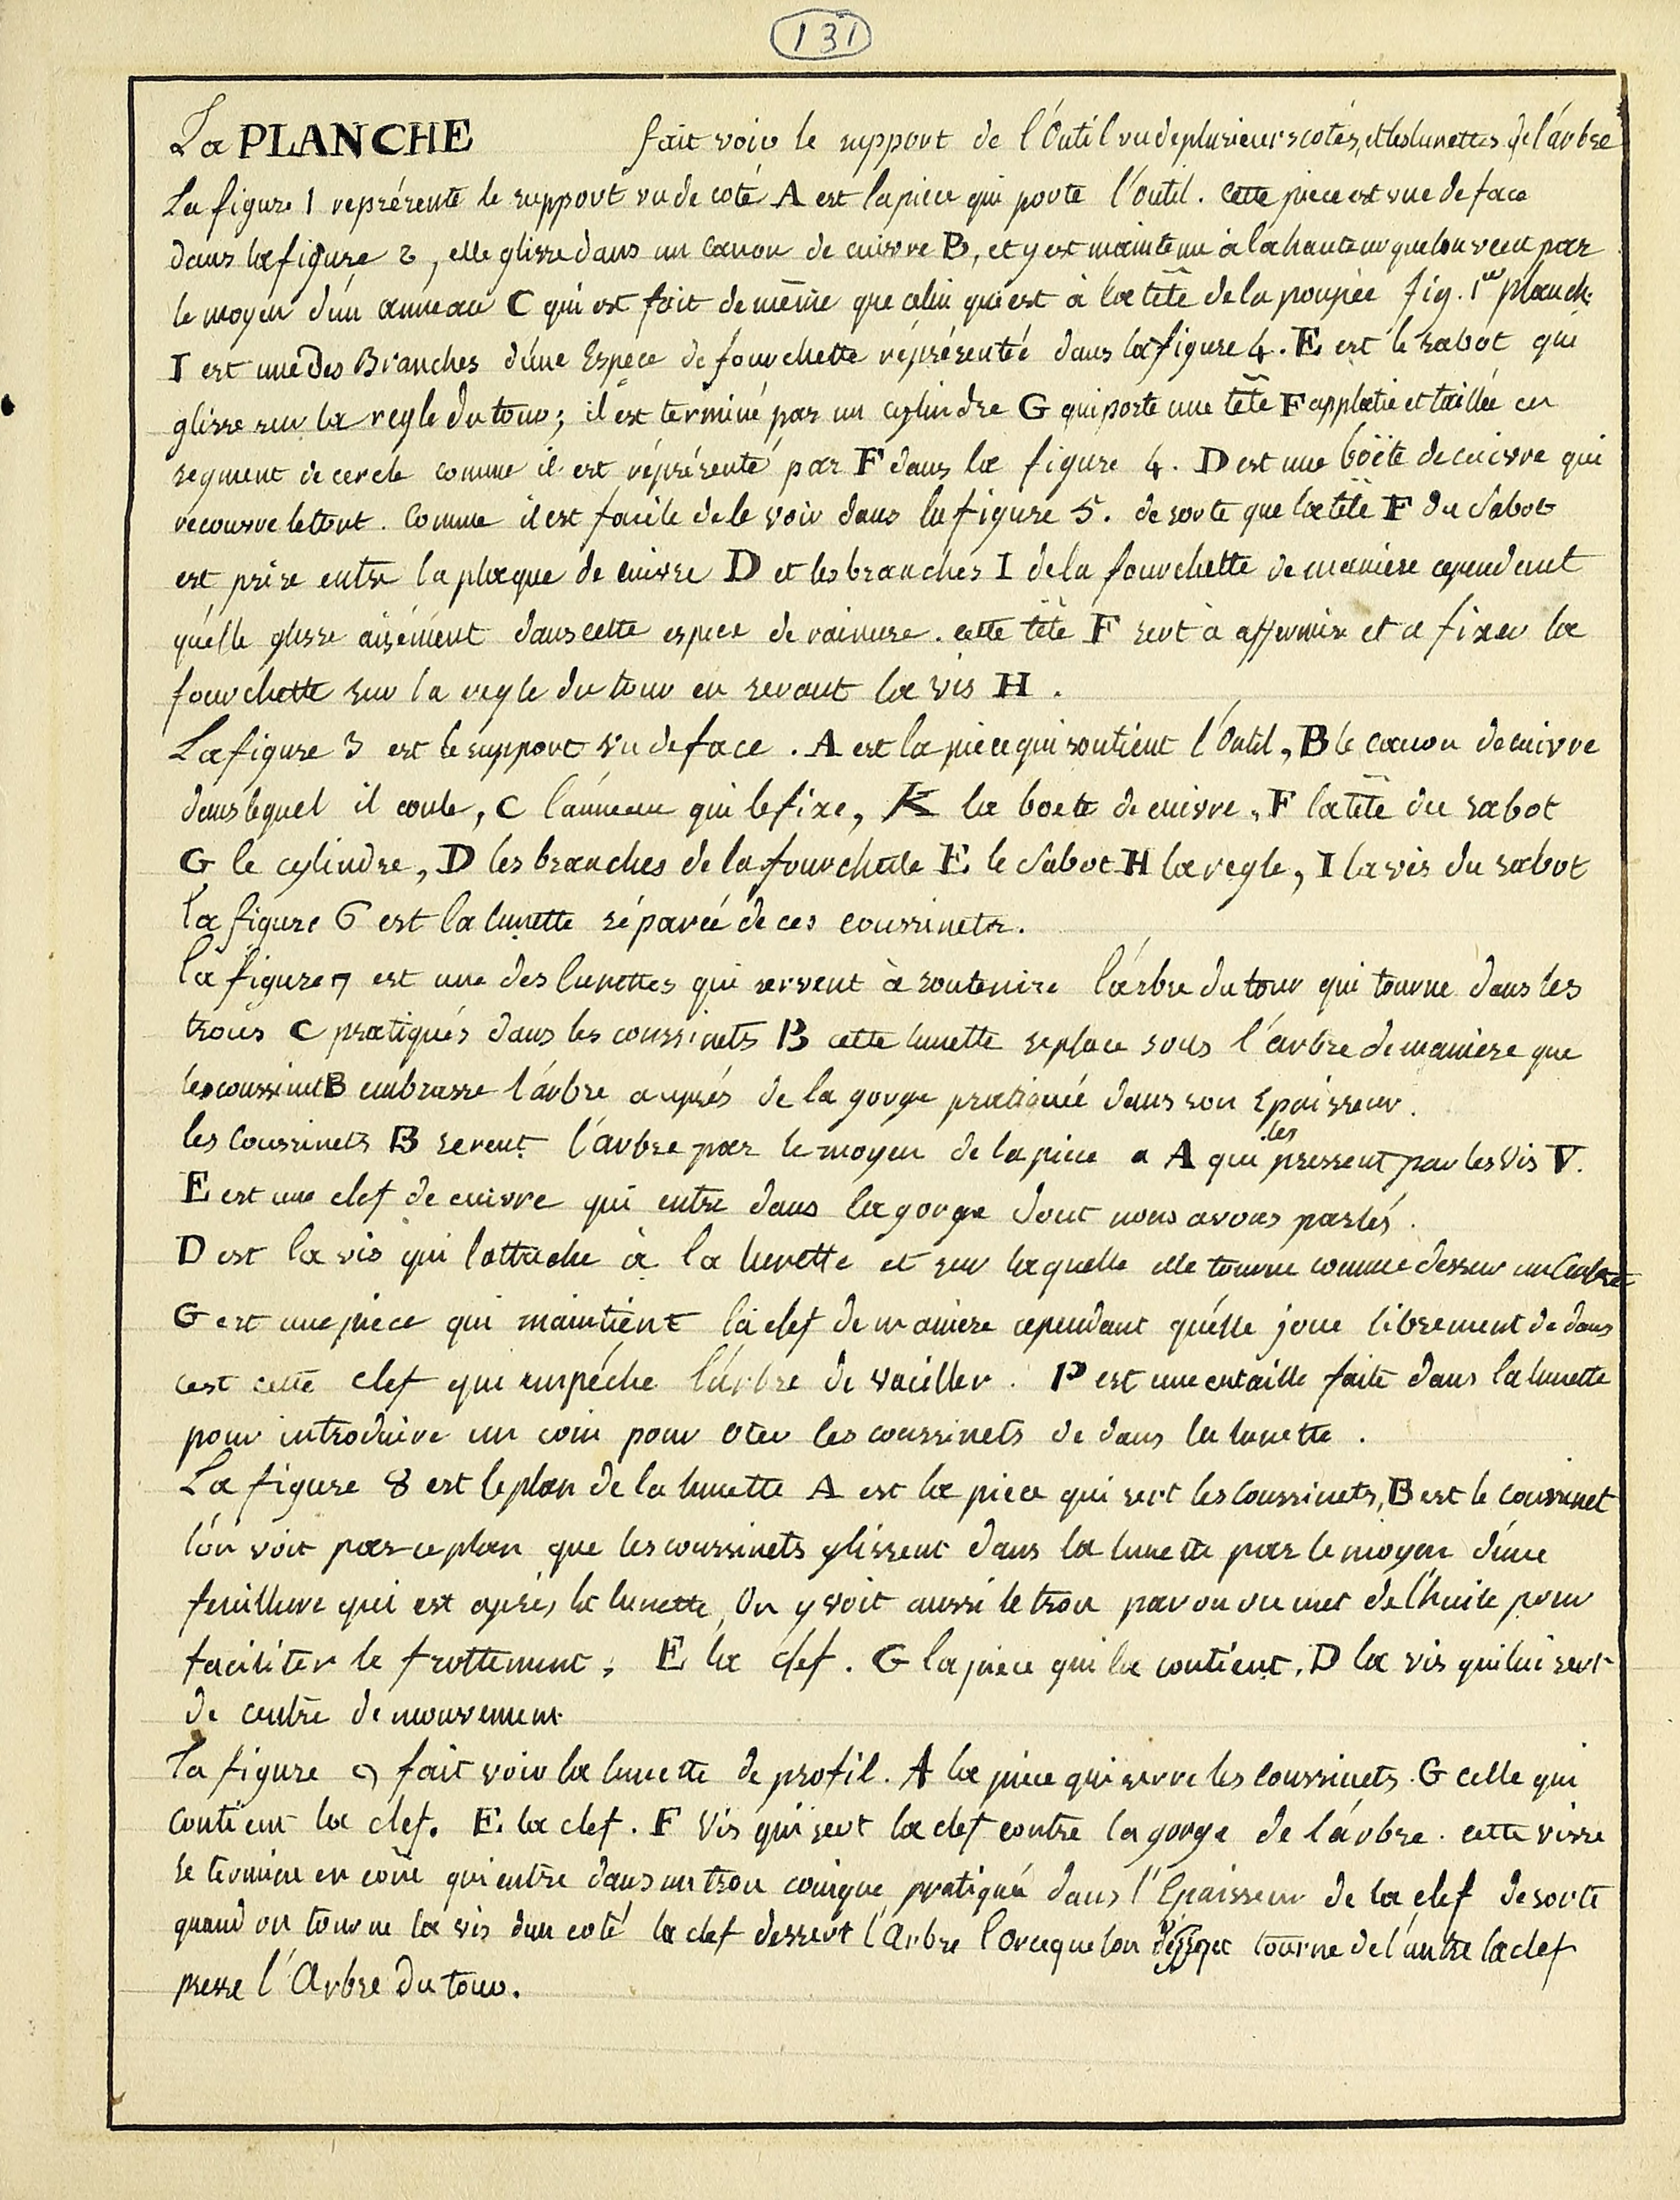 131
La PLANCHE fait voir le support de l'Outil vu de plusieurs cotés, et les lunettes de l'árbre
La figure 1 représente le support vu de coté A est la piece qui porte l'outil. Cette piece est vue de face
dans la figure 2, elle glisse dans un canon de cuivre B, et y est maintenu à la hauteur que lon veut par
le moyen d'un anneau C qui est fait de même que celui qui est à la tête de la poupée fig. 1er planch.
I est une des Branches d'une Espéce de fourchette réprésentée dans la figure 4. E est le sabot qui
glisse sur la regle du tour; il est terminé par un cylindre G qui porte une tête F applatie et taillée en
segment de cercle comme il est réprésenté par F dans la figure 4. D est une boëte de cuivre qui
recouvre le tout. Comme il est facile de le voir dans la figure 5. de sorte que la tête F du Sabot
est prise entre la plaque de cuivre D et les branches I de la fourchette de maniere cependant
qu'elle glisse aisément dans cette espece de rainure. cette tête F sert à affermir et a fixer la
fourchette sur la regle du tour en serant la vis H.
La figure 3 est le support vu de face. A est la piece qui soutient l'Outil, B le canon de cuivre
dans lequel il coule, C l'anneau qui le fixe, K la boete de cuivre, F la tête du sabot
G le cylindre, D les branches de la fourchette E le Sabot H la regle, I la vis du sabot
la figure 6 est la lunette séparée de ces coussinets.
la figure 7 est une des lunettes qui servent à soutenire l'arbre du tour qui tourne dans les
trous C pratiqués dans les coussinets B cette lunette se place sous l'arbre de maniere que
les coussinet B embrasse l'árbre auprés de la gorge pratiquée dans son Epaisseur.
les Coussinets B serent l'arbre par le moyen de la piece a A qui les pressent par les vis V.
E est une clef de cuivre qui entre dans la gorge dont nous avons parlés.
D est la vis qui l'attache à la lunette et sur laquelle elle tourne comme dessur un Centre
G est une piéce qui maintient la clef de maniere cependant quélle joue librement de dans
cest cette clef qui empéche l'árbre de vaciller. P est une entaille faite dans la lunette
pour introduire un coin pour oter les coussinets de dans la lunette.
La figure 8 est le plan de la lunette A est la piece qui sert les Coussinets, B est le coussinet
l'ón voit par ce plan que les coussinets glissent dans la lunette par le moyen d'úne
feuillure qui est aprés la lunette, On y voit aussi le trou par ou on met de l'huile pour
faciliter le frottement; E la clef. G la piece qui la contient, D la vis qui lui sert
de centre de mouvement
la figure 9 fait voir la lunette de profil. A la piece qui serre les Coussinets. G celle qui
contient la clef. E la clef. F Vis qui sert la clef contre la gorge de l'árbre. cette visse
se termine en cône qui entre dans un trou conique pratiqué dans l'Epaisseur de la clef de sorte
quand on tourne la vis d'un coté la clef dessert l'Arbre lorceque lon tourne de l'autre la clef
presse l'Arbre du tour.